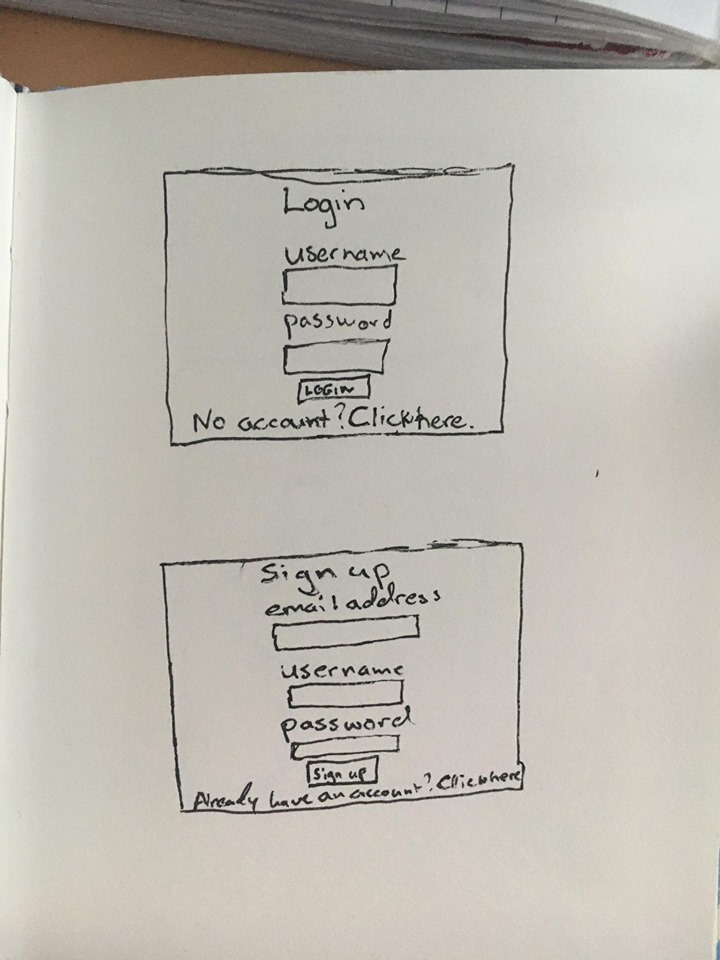 Login
username
password
LOGIN
No account? Click here.
Sign up
email address
username
password
Sign up
Already have an account? Click here